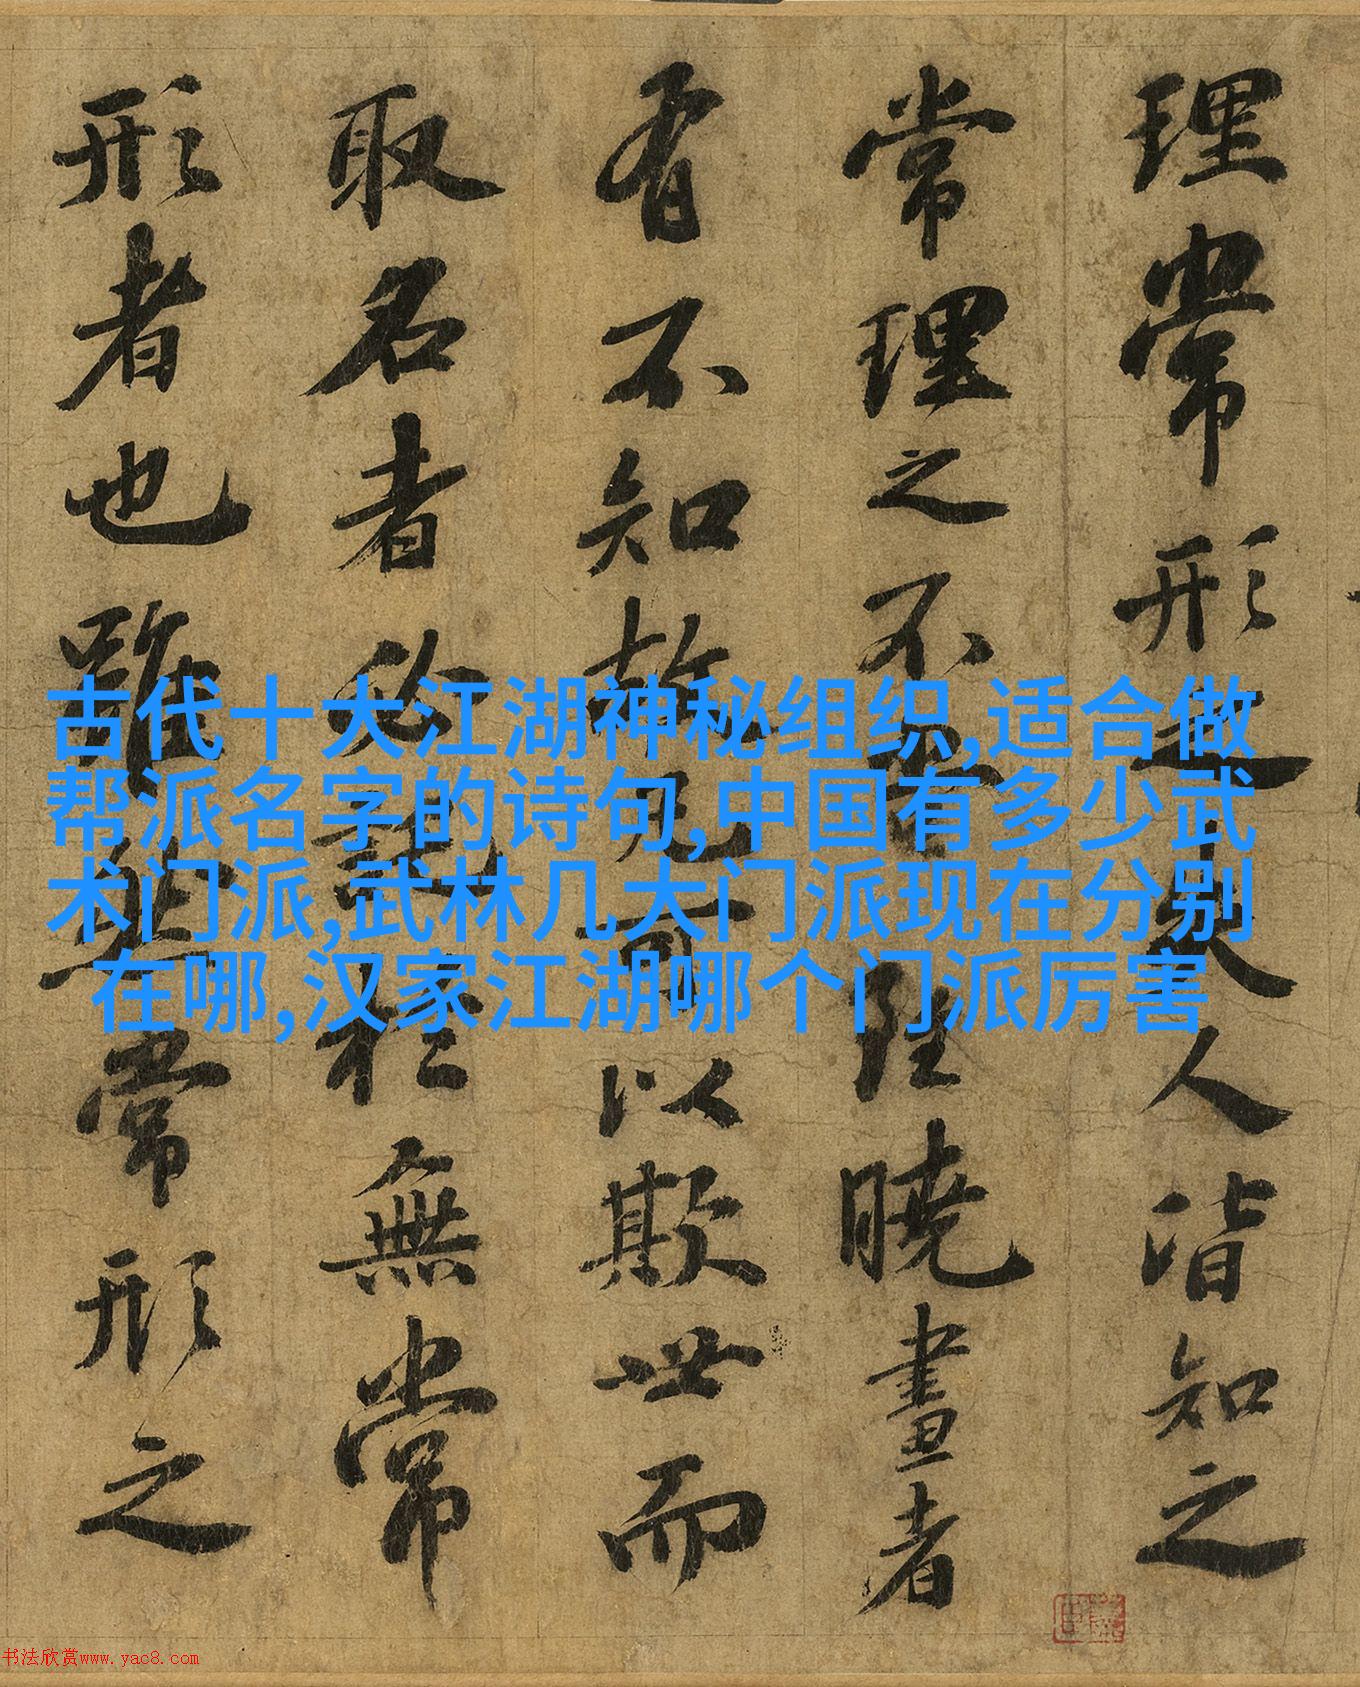 理常形之失人皆知之
常理之不當雖曉畫者
有不知故凡可以欺世而
取名者必託於無常
形者也雖然常形之
古代十大江湖神秘组织,适合做
帮派名字的诗句,中国有多少武
术门派,武林几大门派现在分别
在哪,汉家江湖哪个门派厉害
书法欣赏www.yac8.com